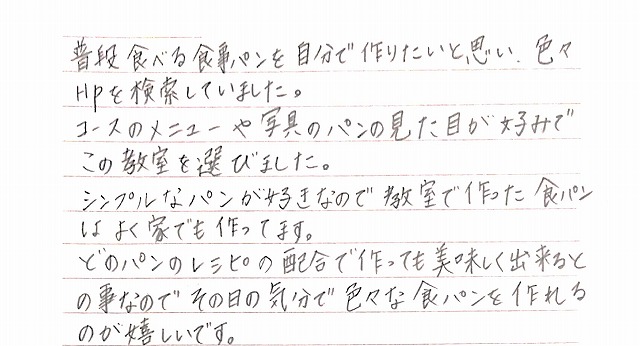 普段食べる食事パンを自分で作りたいと思い、色々
HPを検索していました。
コースのメニューや写真のパンの見た目が好みで
この教室を選びました。
シンプルなパンが好きなので教室で作った食パン
はよく家でも作ってます。
どのパンのレシピの配合で作っても美味しく出来ると
の事なのでその日の気分で色々な食パンを作れる
のが嬉しいです。